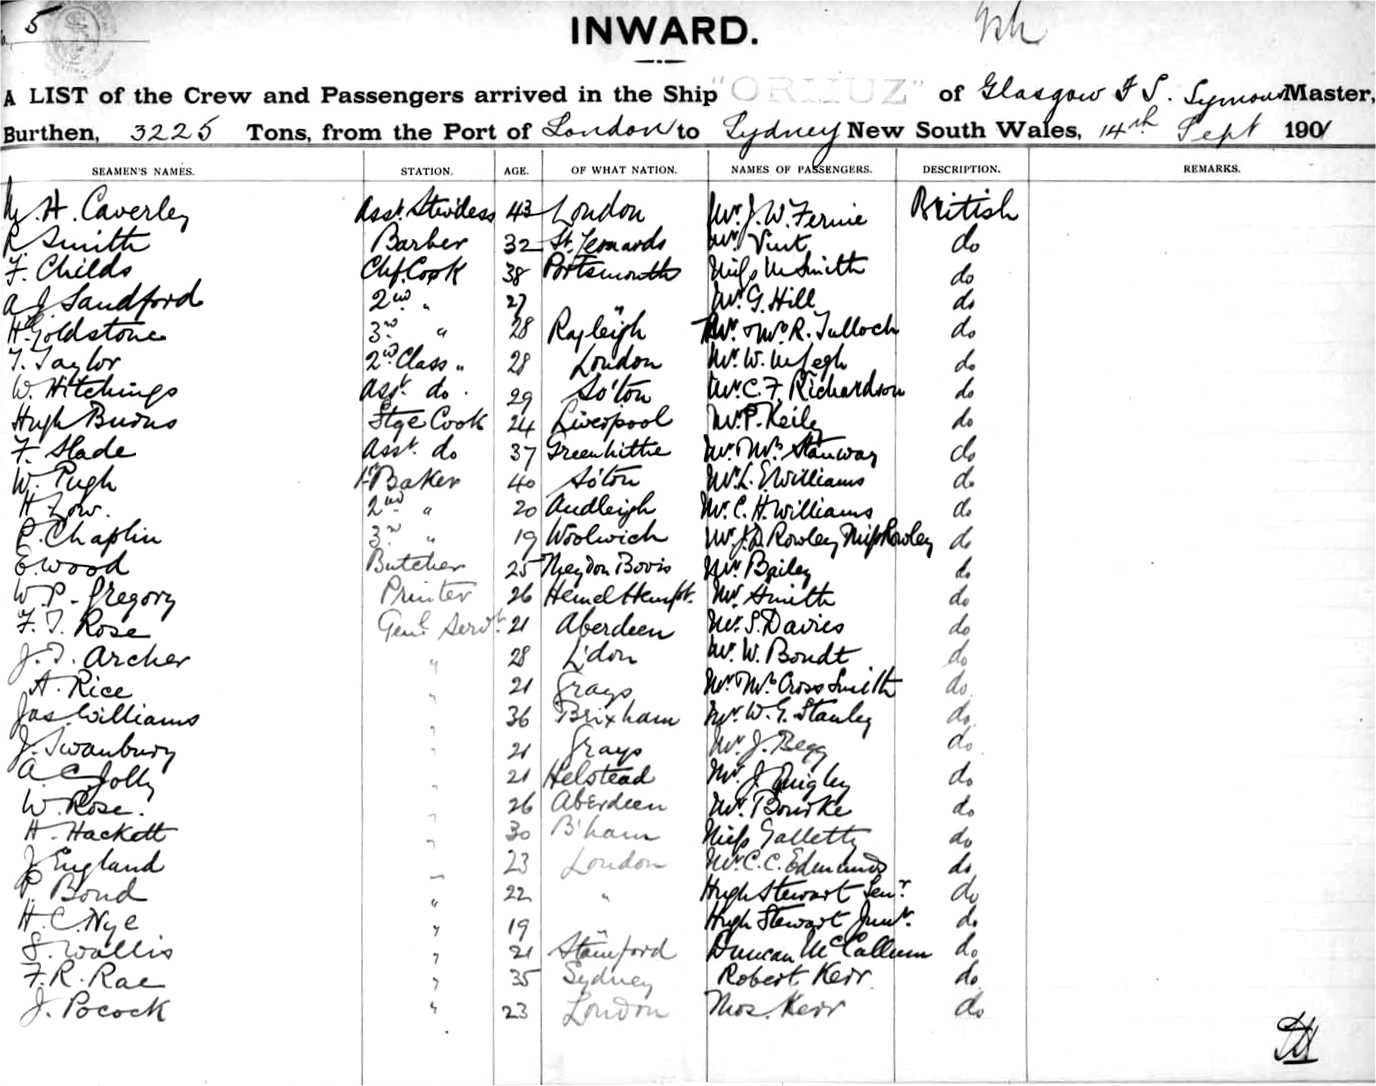 5
INWARD.
A LIST of the Crew and Passengers arrived in the Ship "ORMUZ" of Glasgow F S. Symons Master,
Burthen, 3225 Tons, from the Port of London to Sydney New South Wales, 14th Sept 1901
SEAMEN'S NAMES. STATION. AGE. OF WHAT NATION. NAMES OF PASSENGERS. DESCRIPTION. REMARKS.
M. H. Caverley Asst. Stewdess 43 London Mr. J. W. Fernie British
R Smith Barber 32 St. Leonards Mr Vint do
F. Childs Chf. Cook 38 Portsmouth Miss M Smith do
A J. Sandford 2nd " 27 " Mr. G. Hill do
H Goldstone 3rd " 28 Rayleigh Mr. & Mrs R. Tulloch do
T. Taylor 2nd Class " 28 London Mr. W. do
W. Hitchings asst. do. 29 So'ton Mr. C. F. Richardson do
Hugh Burns Stge Cook 24 Liverpool Mr. P. Keily do
F. Slade asst. do 37 Greenhithe Mr. & Mrs. Stanway do
W. Pugh 1st Baker 40 So'ton Mr. L. E. Williams do
H Low. 2nd " 20 Audleigh Mr. C. H. Williams do
P. Chaplin 3rd " 19 Woolwich Mr. J. D. Rowley Miss Rowley do
E. Wood Butcher 25 Theydon Bovis Mr Bailey do
W. P. Gregory Printer 26 Hemel Hempt. Mr. Smith do
F. J. Rose Genl. Servt. 21 Aberdeen Mr. S. Davies do
J. J. Archer " 28 L'don Mr. W. Bondt do
A. Rice " 21 Grays Mr. & Mrs Cross Smith do.
Jas. Williams " 36 Brixham Mr. W. G. Stanley do.
J. Swanbury " 21 Grays Mr. J. Begg do.
A. C Jolly " 21 Helstead Mr. J Quigley do
W. Rose. " 26 Aberdeen Mr. Bourke do
H. Hackett " 30 B'ham Miss Galletty do
J. England " 23 London Mr. C. C. Edmunds do
P. Bond " 22 " Hugh Stewart Senr. do
H. C. Nye " 19 " Hugh Stewart Junr. do
S. Wallis " 21 Stamford Duncan McCallum do
F. R. Rae " 35 Sydney Robert Kerr. do
J. Pocock " 23 London Thos. Kerr do